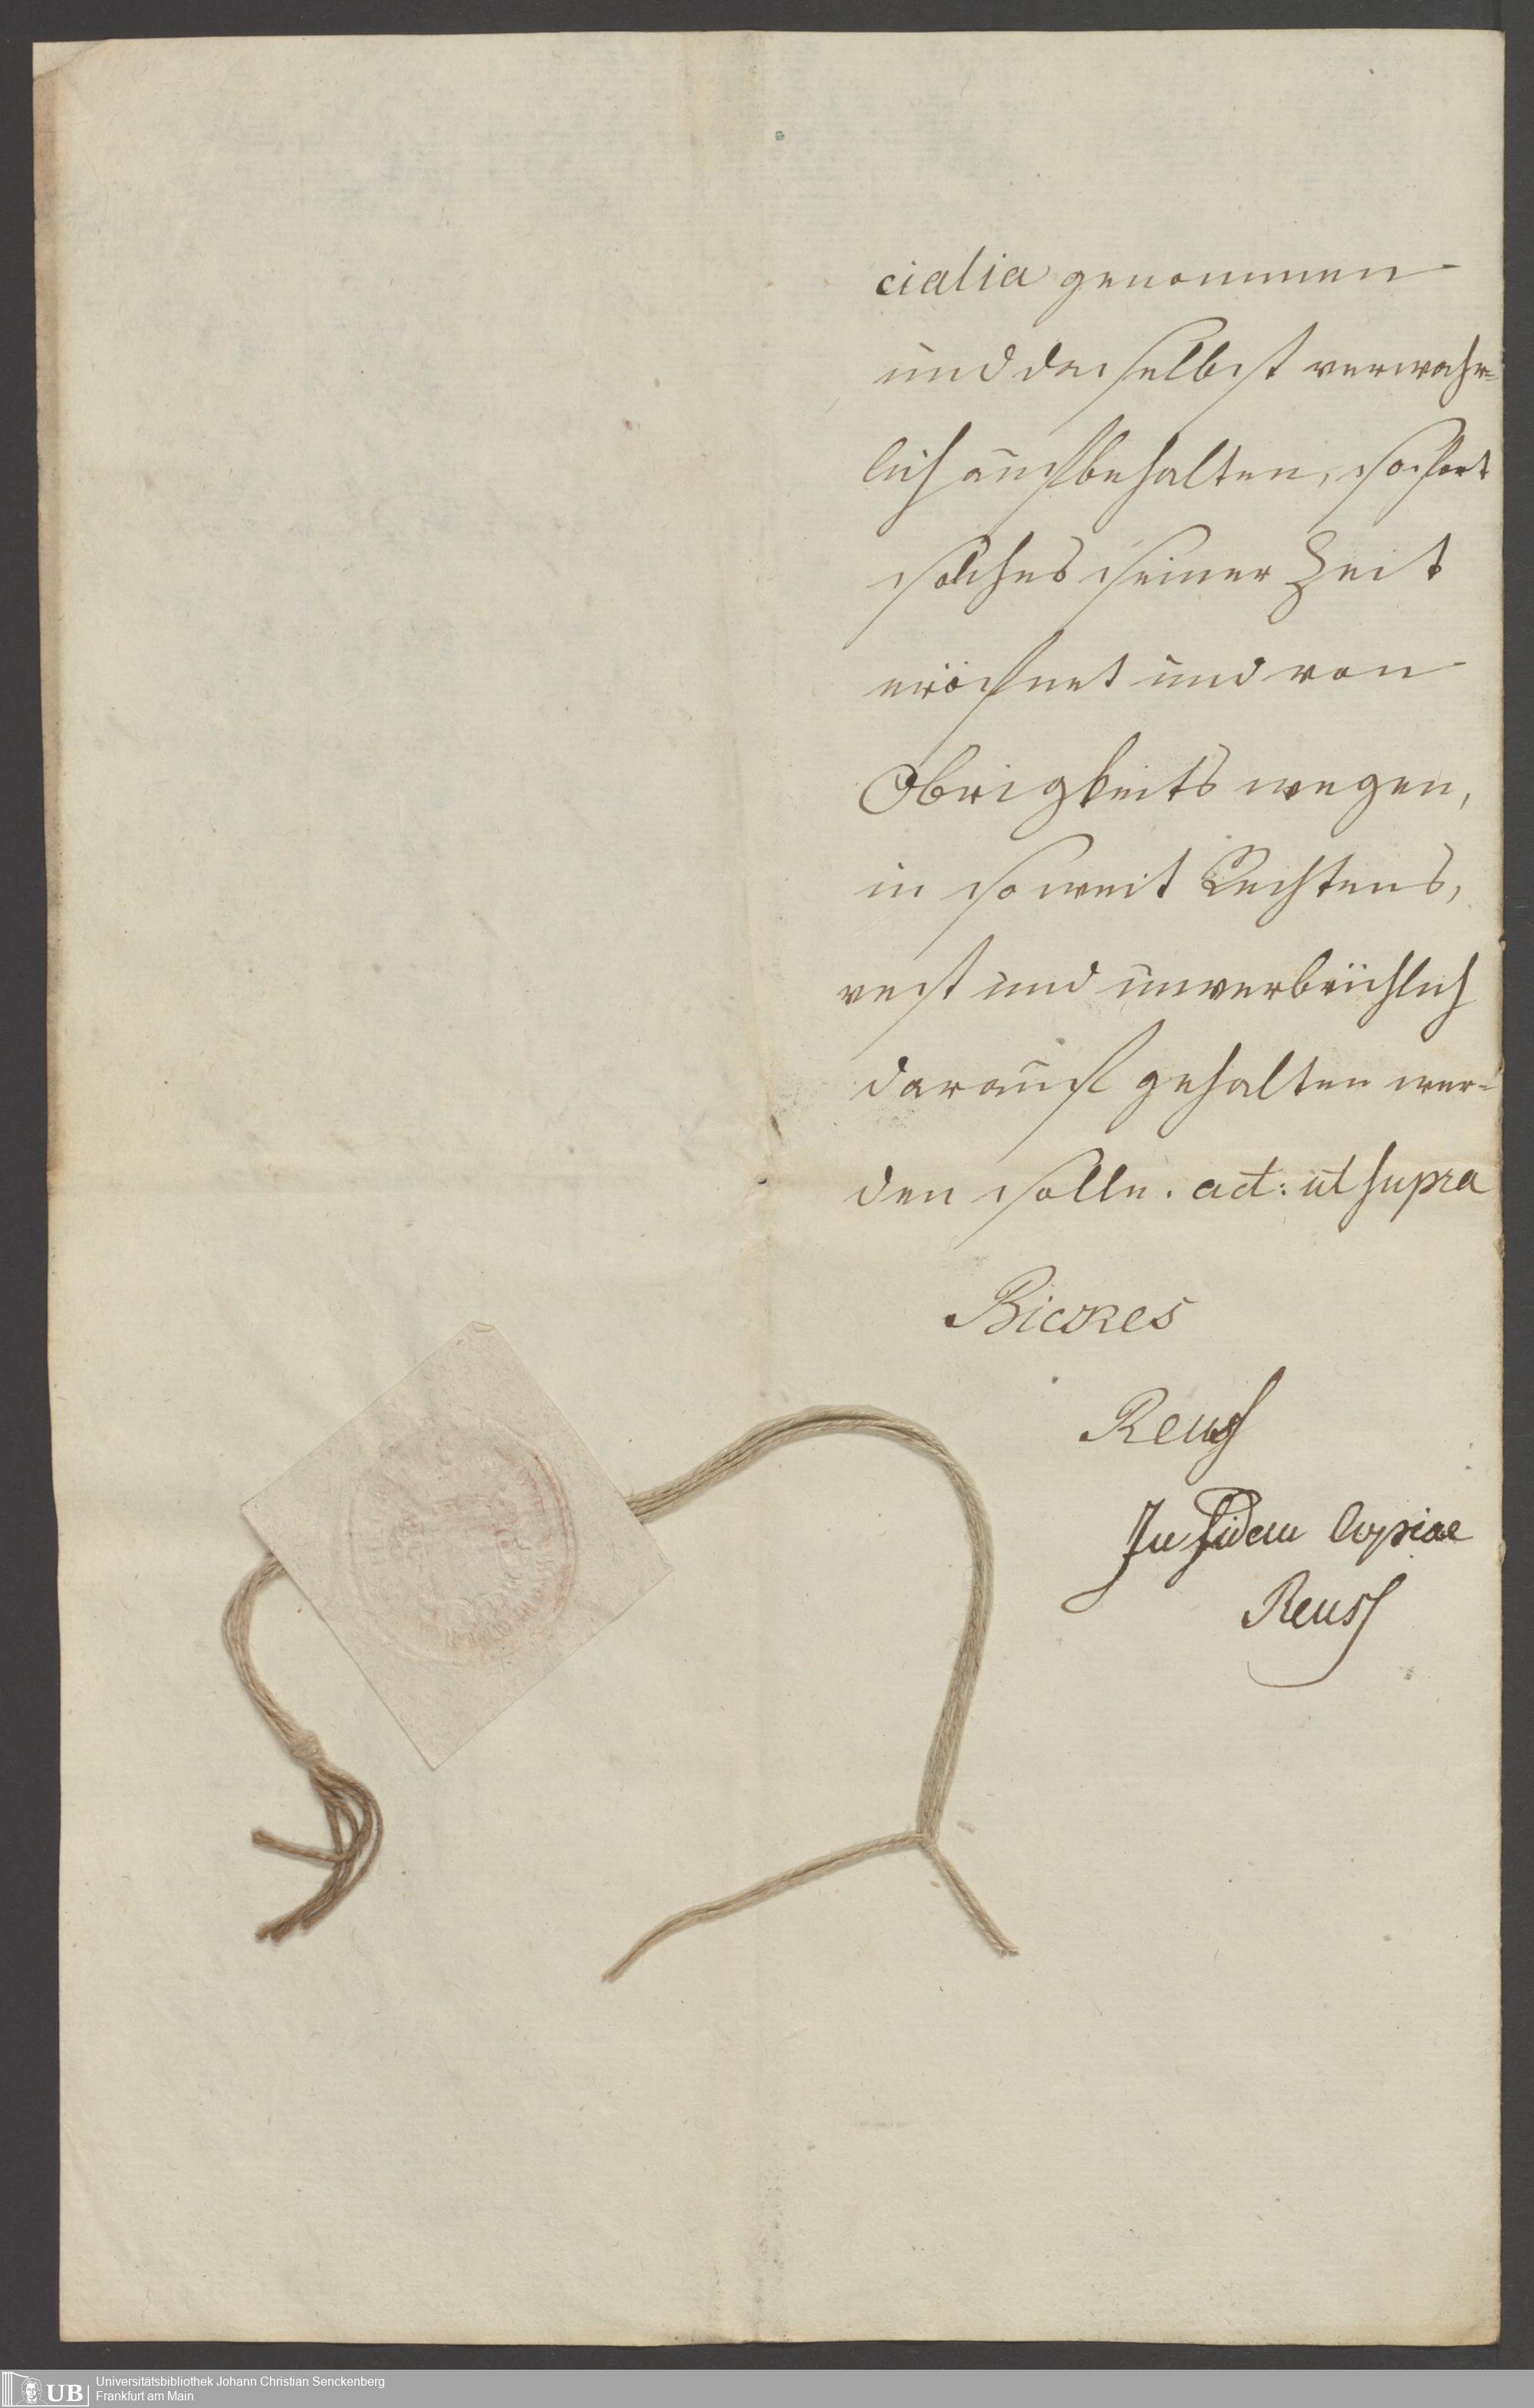 cialia genommen
und daselbst verwahr-
lich aufbehalten, sofort
solches seiner Zeit
eröfnet und von
Obrigkeits wegen,
in so weit Rechtens,
vest und unverbrüchlich
darauf gehalten wer-
den solle. act: ut supra
Bickes
Reuss
In fidem Copiae
Reuss
UB
Universitätsbibliothek Johann Christian Senckenberg
Frankfurt am Main